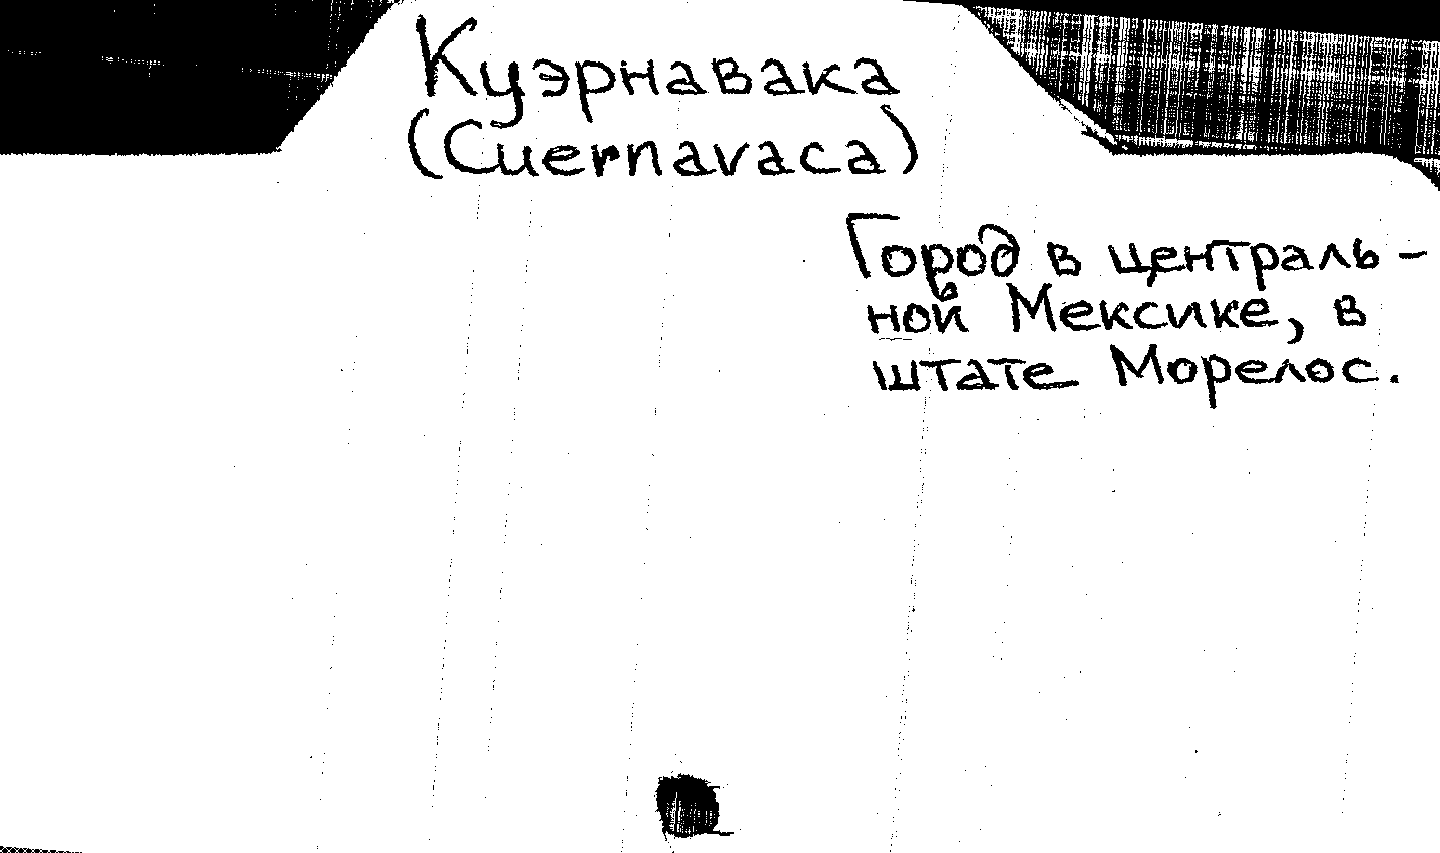 Куэрнавака
(Cuernavaca)
Город в централь-
ной Мексике, в
штате Морелос.